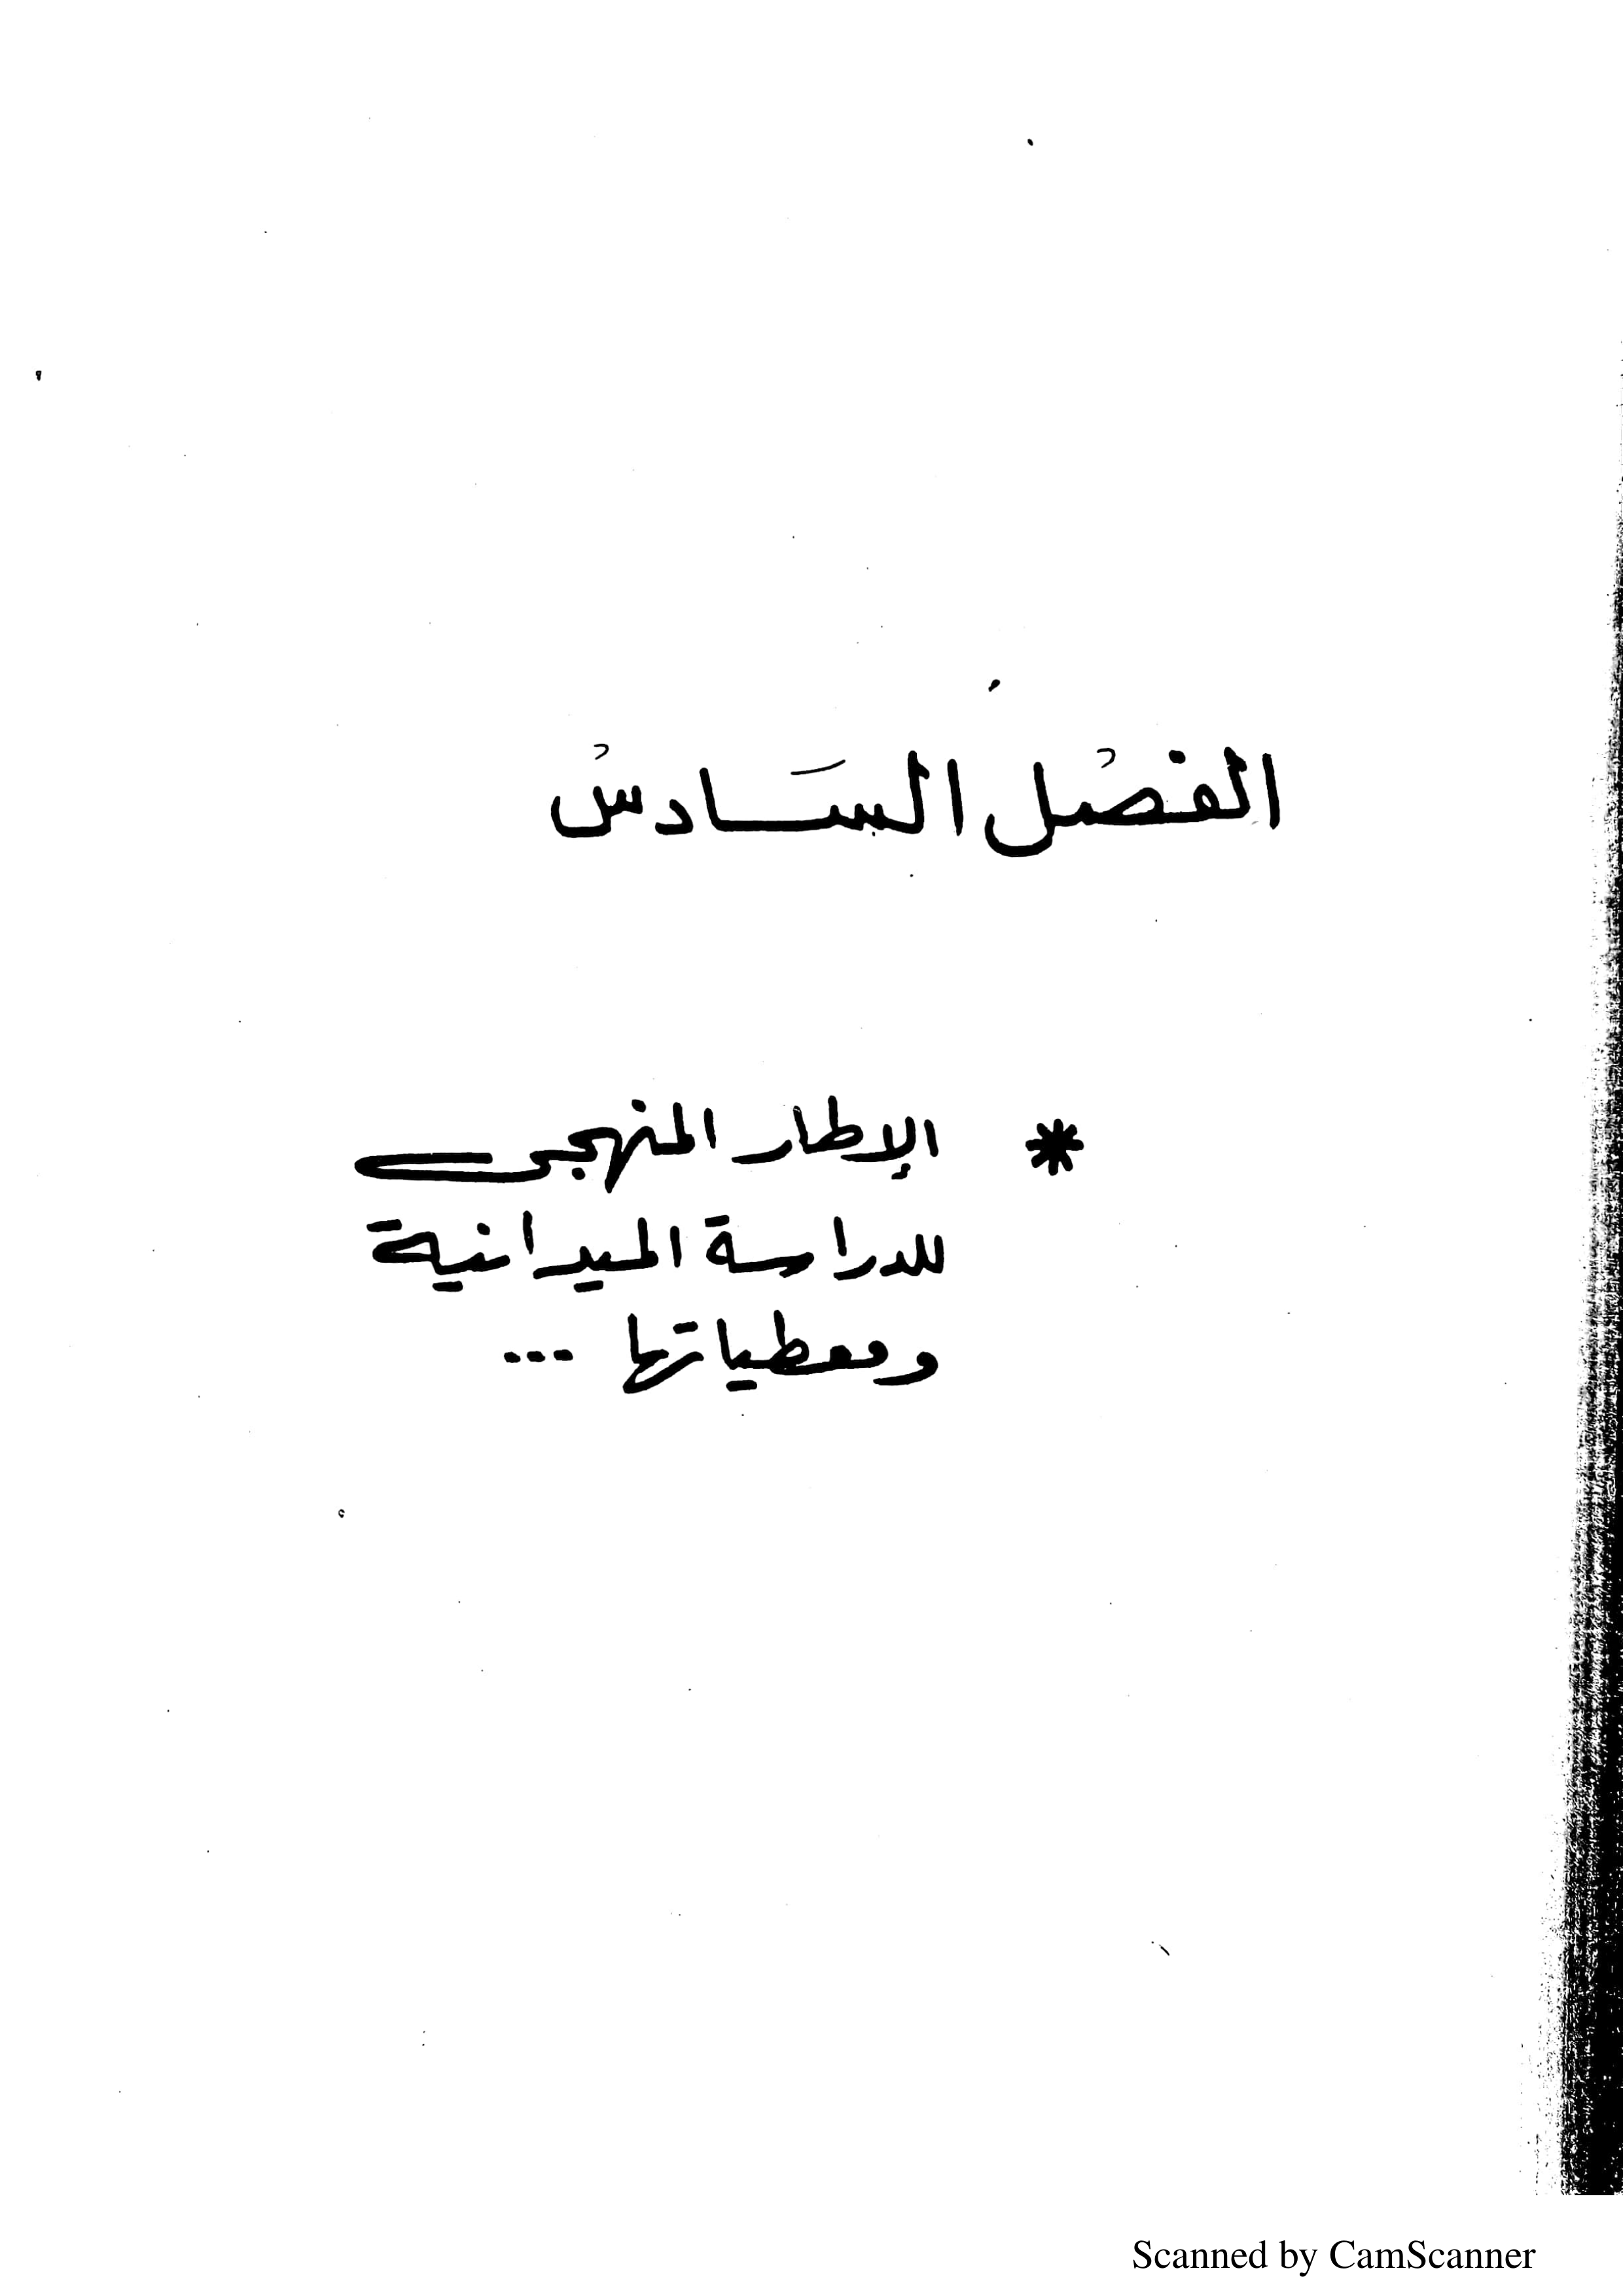 الفصْل السَادسْ
* الإطار المنهجى
للدراسة الميدانية
ومعطياتها ...
Scanned by CamScanner